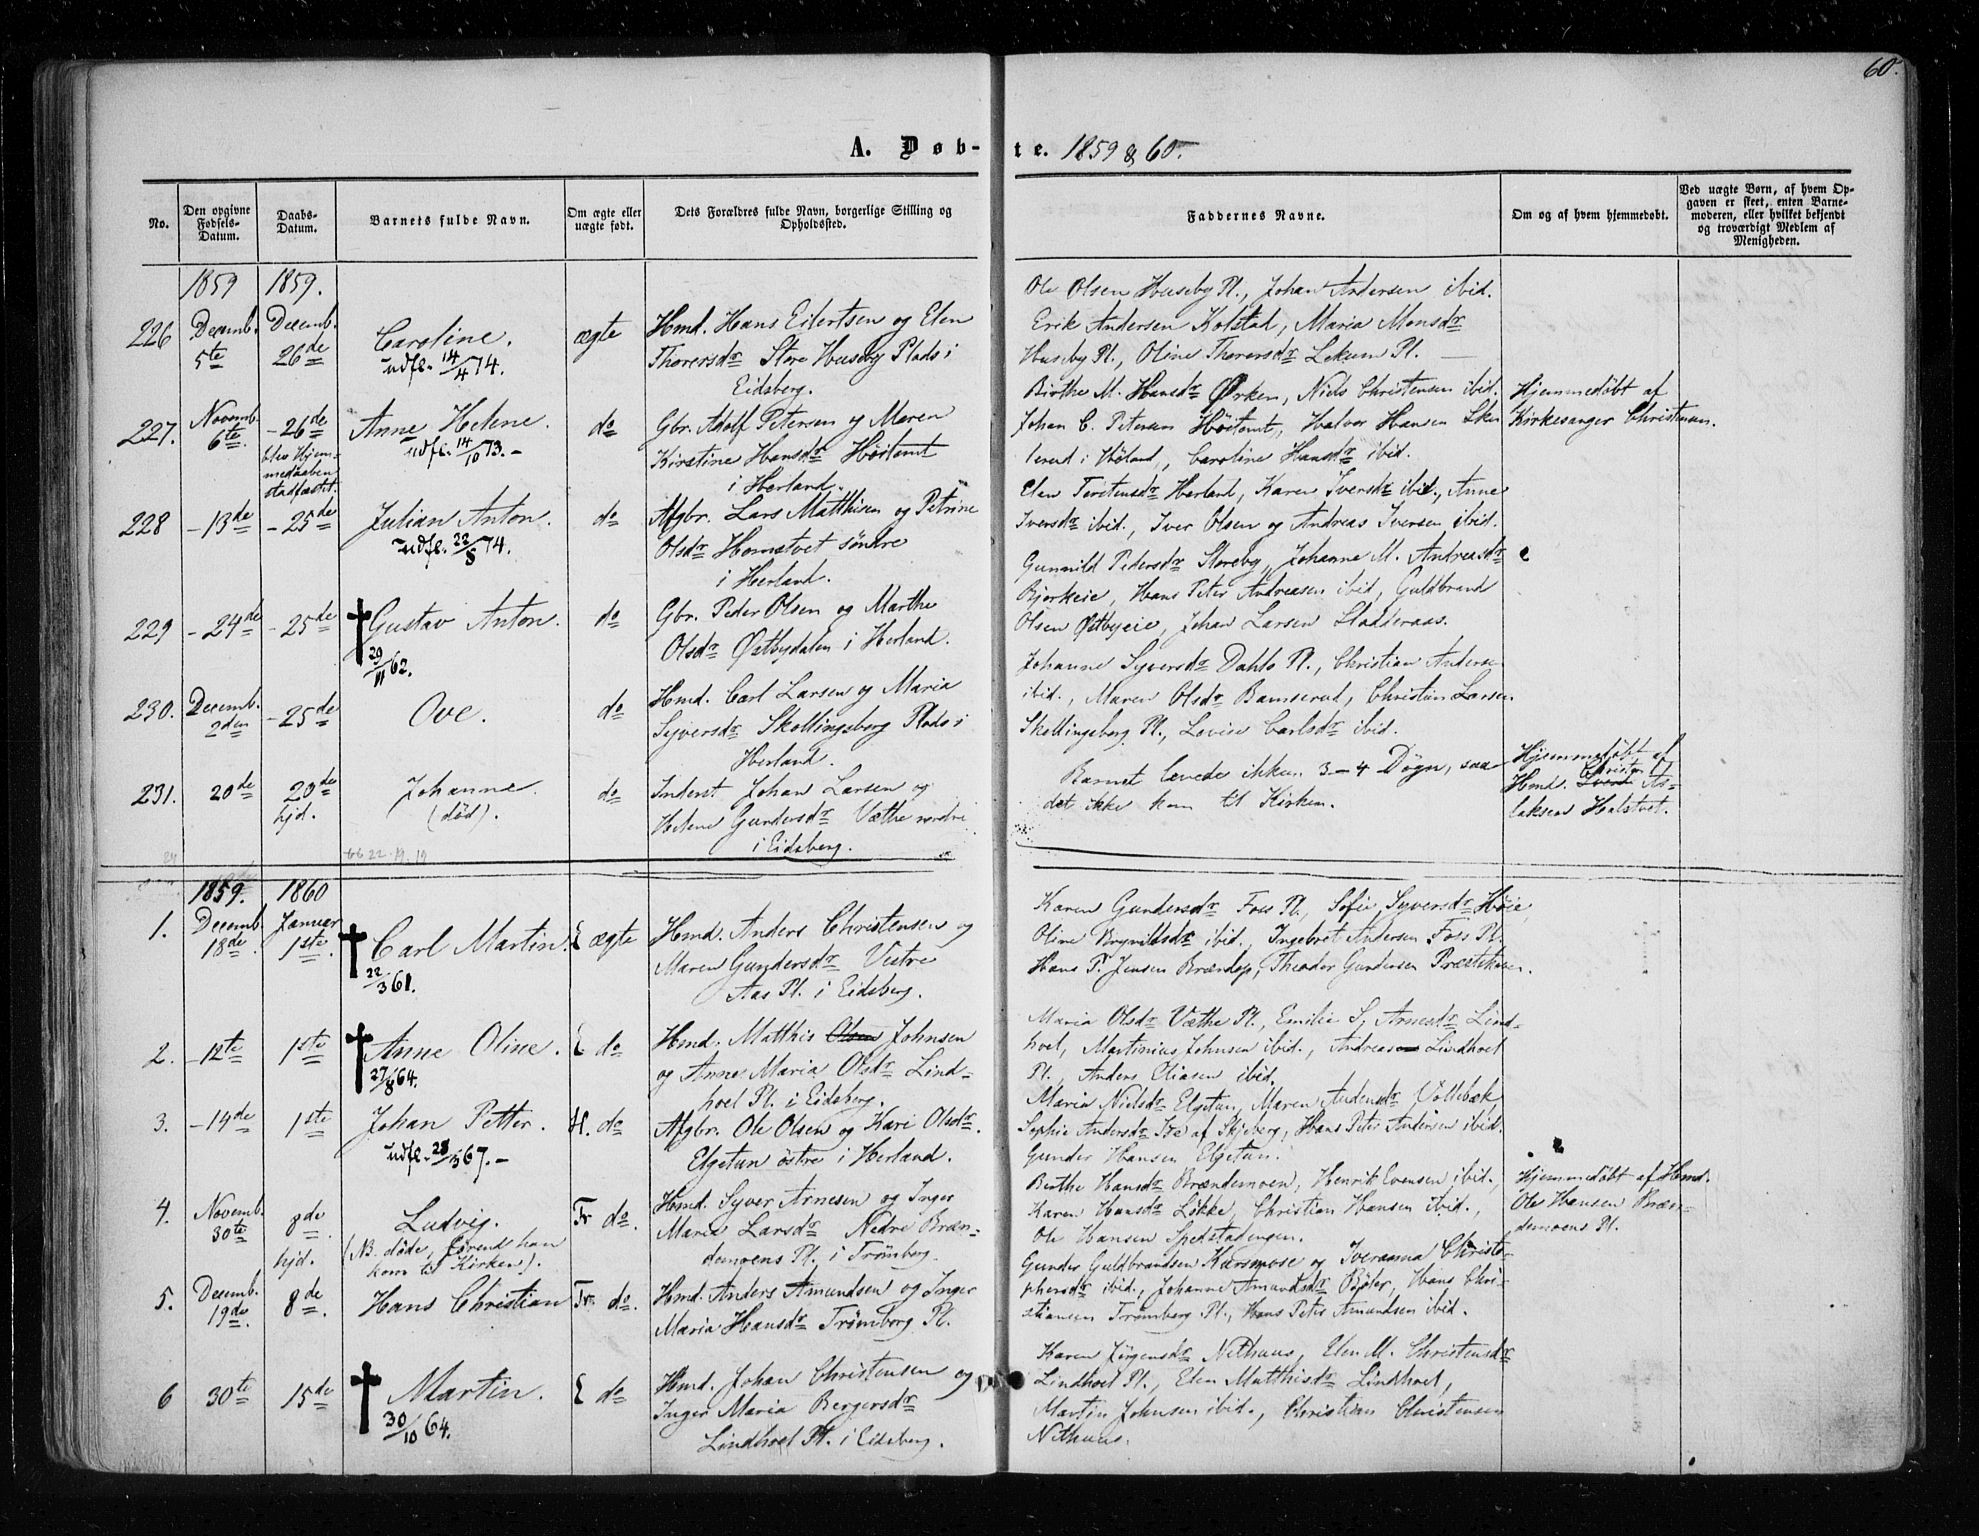 60.
A. Døb-te. 1859 & 60.
No.
Den opgivne Fødsels-Datum.
Daabs-Datum.
Barnets fulde Navn.
Om ægte eller uægte født.
Dets Forældres fulde Navn, borgerlige Stilling og Opholdssted.
Faddernes Navne.
Om og af hvem hjemmedøbt.
Ved uægte Børn, af hvem Op-
gaven er skeet, enten Barne-
moderen, eller hvilket bekjendt
og troværdigt Medlem af
Menigheden.
1859 1859.
226 Decemb. 5te Decemb. 26de Caroline. udfl. 14/4 74. ægte
Hmd. Hans Eilertsen og Elen
Thorersdr Store Huseby Plads i
Eidsberg.
Ole Olsen Huseby Pl., Johan Andersen ibid.
Erik Andersen Kolstad, Maria Monsdr
Huseby Pl., Oline Thorersdr Lekum Pl.
227. Novemb. 6te. -26de blev Hjem-
medaaben
stadfæstet.
Anne Helene. udfl. 14/10 73.- do
Gbr. Adolf Petersen og Maren
Kirstine Hansdr Höitomt
i Herland.
Birthe M. Hansdr Ørken, Niels Christensen ibid.
Johan C. Petersen Höitomt, Halvor Hansen Sku
lerud i Höland, Caroline Hansdr ibid.
Hjemmedöbt af
Kirkesanger Christensen.
228 -13de -25de Julian Anton. udfl. 22/8 74. do
Afgbr. Lars Matthisen og Petrine
Olsdr Homstvet söndre
i Herland.
Elen Torstensdr Herland, Karen Iversdr ibid., Anne
Iversdr ibid., Iver Olsen og Andreas Iversen ibid.
229 -24de -25de Gustav Anton. 29/11 62. do
Gbr. Peder Olsen og Marthe
Olsdr Østbydalen i Herland.
Gunnild Pedersdr Storeby, Johanne M. Andreasdr
Bjorkeie, Hans Peter Andreasen ibid, Guldbrand
Olsen Østbyeie, Johan Larsen Sladderaas.
230. Decemb. 2den -25de Ove. do
Hmd. Carl Larsen og Maria
Syversdr Skollingsberg Plads i
Herland.
Johanne Syversdr Dahlo Pl., Christian Andersen
ibid., Maren Olsdr Bamserud, Christian Larsen
Skollingsberg Pl., Lovise Carlsdr ibid.
231. 20de 20de hjd. Johanne. (död). do
Inderst Johan Larsen og
Helene Gundersdr Væthe nordre
i Eidsberg.
Barnet levede ikkun 3-4 Dögn, saa
det ikke kom til Kirken.
Hjemmedöbt af
Hmd. Christen As-
laksen Halstvet.
66 22 19 19
1859. 1860
1. Decemb. 18de. Januar 1ste. Carl Martin. 22/3 61. E ægte
Hmd. Anders Christensen og
Maren Gundersdr Vestre
Aas Pl. i Eidsberg.
Karen Gundersdr Foss Pl., Sofie Syversdr Höie,
Oline Brynildsdr ibid., Ingebret Andersen Foss Pl.
Hans P. Jensen Brændop, Theodor Gundersen
2. -12te 1ste Anne Oline. 27/8 64. E do
Hmd. Matthis Olsen Johnsen
og Anne Maria Olsdr Lind-
hoel Pl. i Eidsberg.
Maria Olsdr Væthe Pl., Emilie S. Arnesdr Lind-
hoel, Martinius Johnsen ibid., Andreas Lindhoel
Pl., Anders Eliasen ibid.
3. -14de 1ste Johan Petter. udfl. 28/3 67.- H. do
Afgbr. Ole Olsen og Kari Olsdr.
Elgetun östre i Herland.
Maria Nielsdr Elgetun, Maren Andersdr Vollebæk,
Sophie Andersdr Ise af Skjeberg, Hans Peter Andersen ibid.
Gunder Hansen Elgetun.
4. Novemb. 30te 8de hjd. Ludvig.
(NB. döde, förend han
kom til Kirken).
Tr do.
Hmd. Syver Arnesen og Inger
Maria Larsdr Nedre Bræn-
demoens Pl. i Trömborg.
Berthe Hansdr Brændemoen, Henrik Evensen ibid.,
Karen Hansdr Lökke, Christian Hansen ibid.,
Ole Hansen Spedstadengen.
Hjemmedöbt af Hmd.
Ole Hansen Bræn-
demoens Pl.
5. Decemb. 19de. 8de Hans Christian Tr. do.
Hmd. Anders Amundsen og Inger
Maria Hansdr Trömborg Pl.
Gunder Guldbrandsen Karsmose og Iveranna Christo-
phersdr ibid., Johanne Amundsdr Böler, Hans Chri-
stiansen Trömborg Pl., Hans Peter Amundsen ibid.
6 30te 15de Martin. 30/10 64. E do
Hmd. Johan Christensen og
Inger Maria Bergersdr
Lindhoel Pl. i Eidsberg.
Karen Jörgensdr Nethuus, Elen M. Christensdr
Lindhoel Pl., Elen Matthisdr Lindhoel,
Martin Johnsen ibid., Christian Christensen
Nethuus.